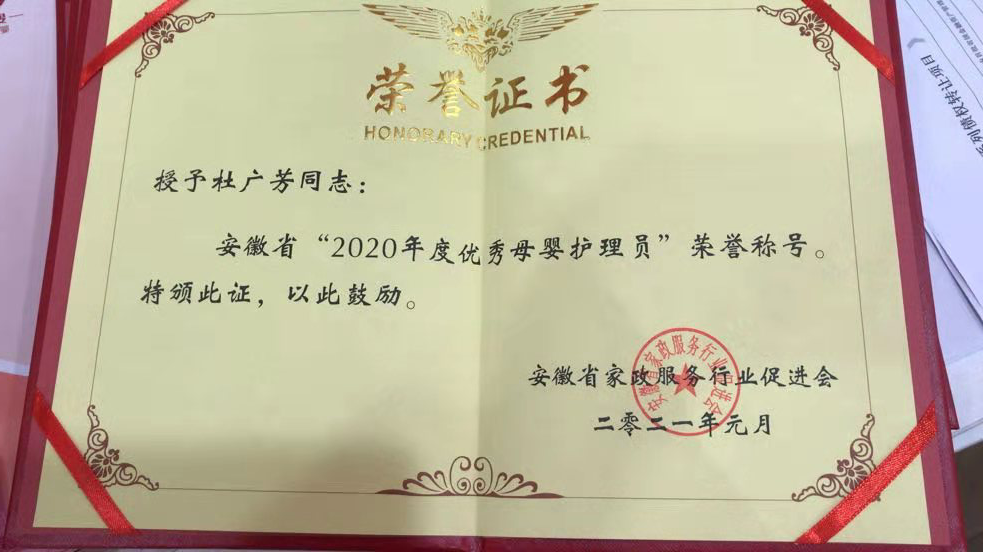 荣誉证书
HONORARY CREDENTIAL
授予杜广芳同志：
安徽省“2020年度优秀母婴护理员”荣誉称号。
特颁此证，以此鼓励。
安徽省家政服务行业促进会
二零二一年元月
安徽省家政服务行业促进会
系列债权转让项目